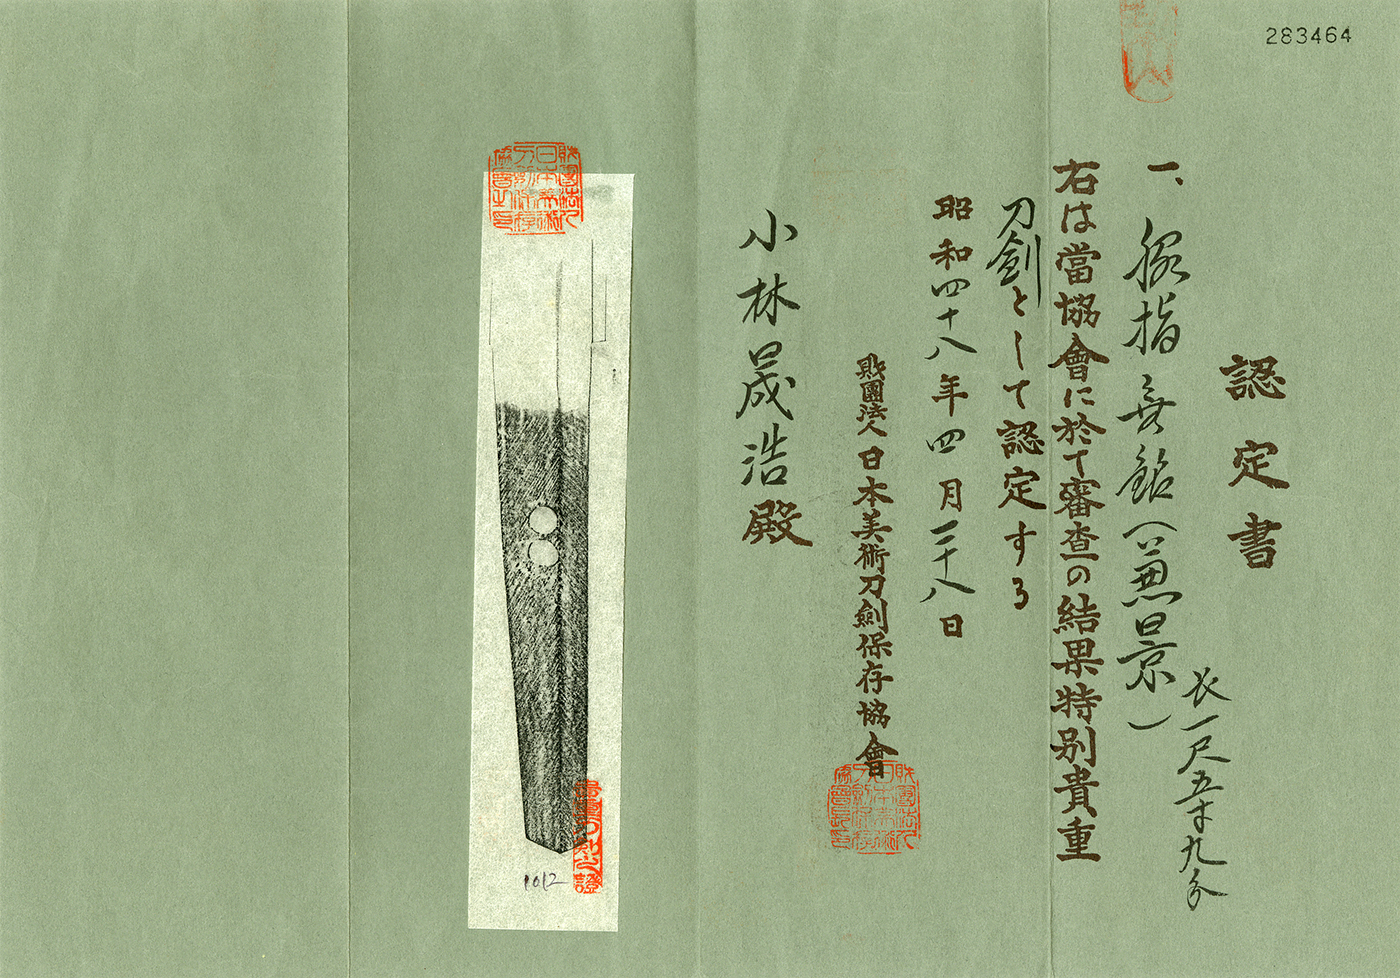 283464
認定書
一、脇指 無銘(兼景)
長一尺五寸九分
右は當協會に於て審査の結果特別貴重
刀劍として認定する
昭和四十八年四月二十八日
財團法人日本美術刀劍保存協會
小林晟浩殿
1012